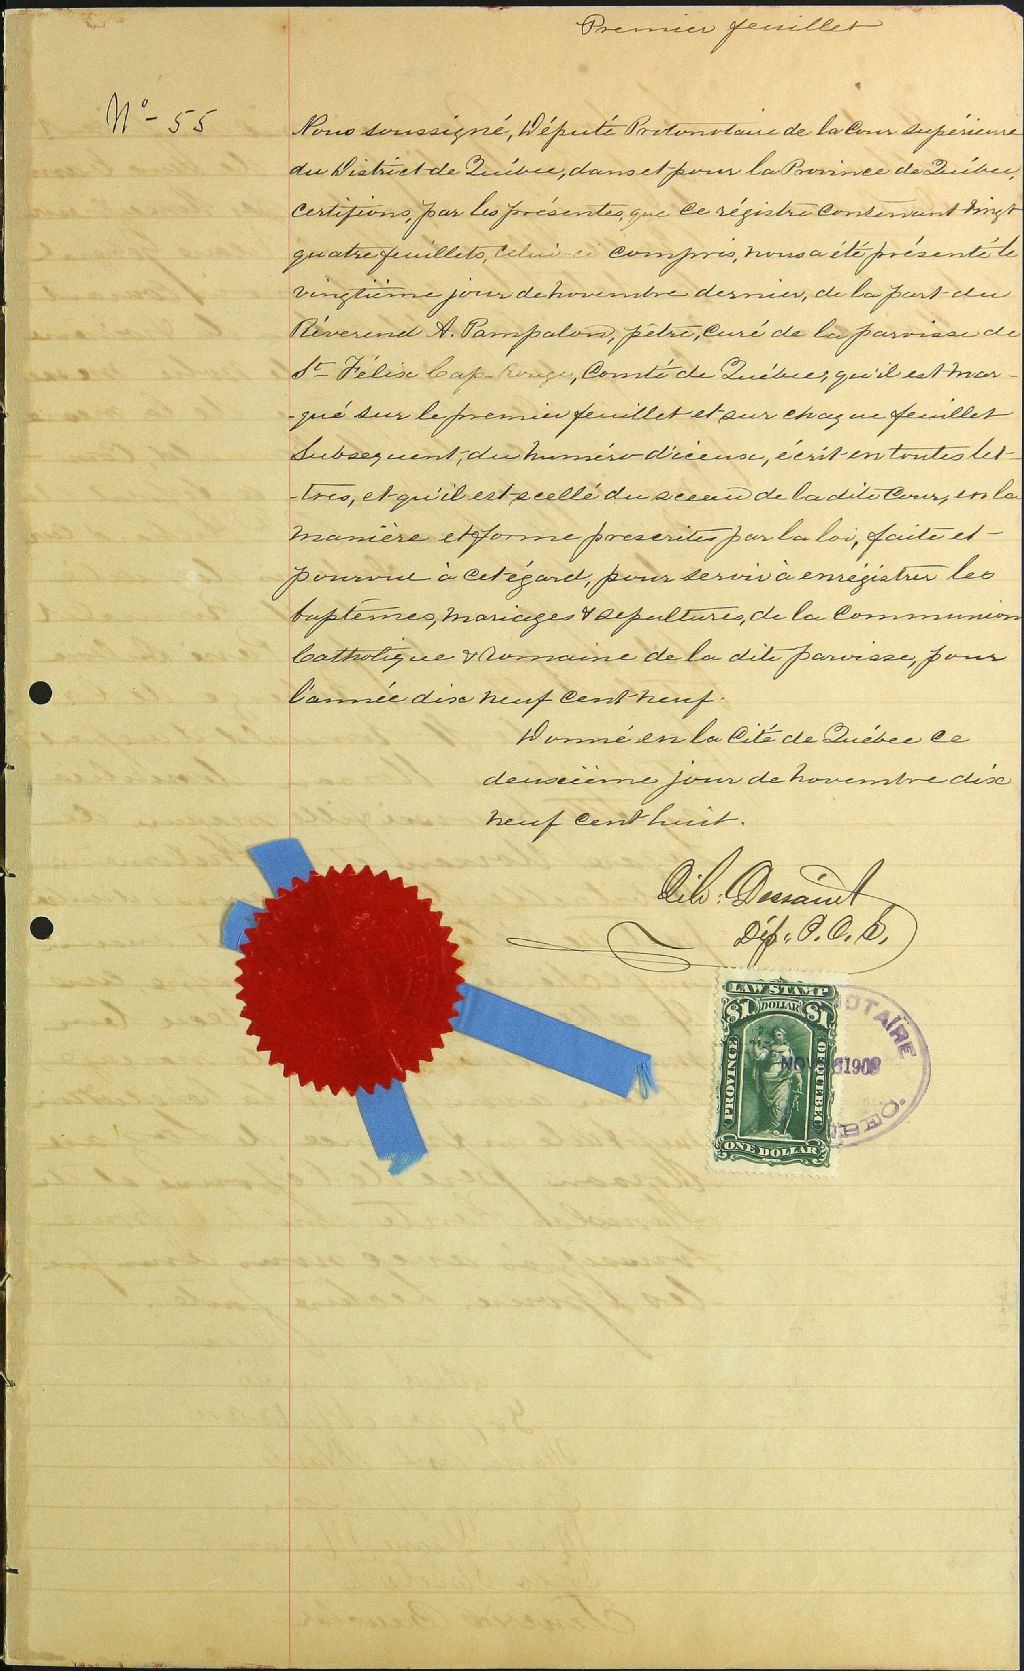 Premier feuillet
No - 55
Nous soussigné, Député Protonotaire de la Cour Supérieure
du District de Québec, dans et pour la Province de Québec,
certifions, par les présentes, que ce régistre contenant vingt
quatre feuillets, celui-ci compris, nous a été présenté le
vingtième jour de novembre dernier, de la part du
Réverend A. Pampalon, pêtre, curé de la paroisse de
St- Félix Cap-Rouge, Comté de Québec, qu'il est mar-
-qué sur le premier feuillet et sur chaque feuillet
subsequent, du numéro d'icenx, écrit en toutes let-
-tres, et qu'il est scellé du sceau de la dite Cour, en la
manière et forme prescrites par la loi, faite et
pourvue à cet égard, pour servir à enrégistrer les
baptêmes, mariages & sepultures, de la Communion
Catholique & Romaine de la dite paroisse, pour
l'année dix neuf cent neuf.
Donné en la Cité de Québec ce
deuxième jour de novembre dix
neuf cent huit.
Dessaint
Dép. P. C. S.
LAW STAMP
$1 DOLLAR $1
PROVINCE OF QUEBEC
ONE DOLLAR
OTAIRE
NOV 1908
BEC.